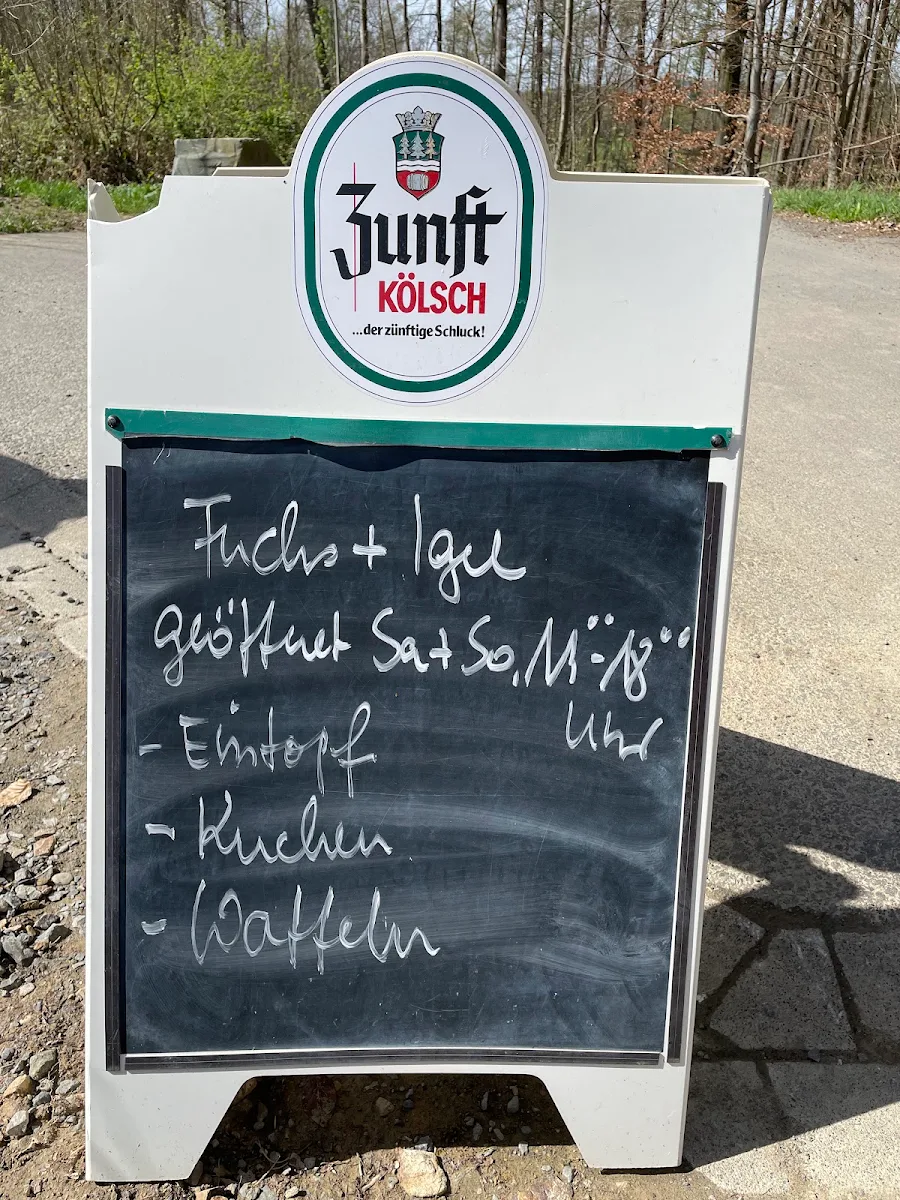 Zunft
KÖLSCH
...der zünftige Schluck!
Fuchs + Igel
geöffnet Sa + So, 11°° - 18°°
Uhr
- Eintopf
- Kuchen
- Waffeln